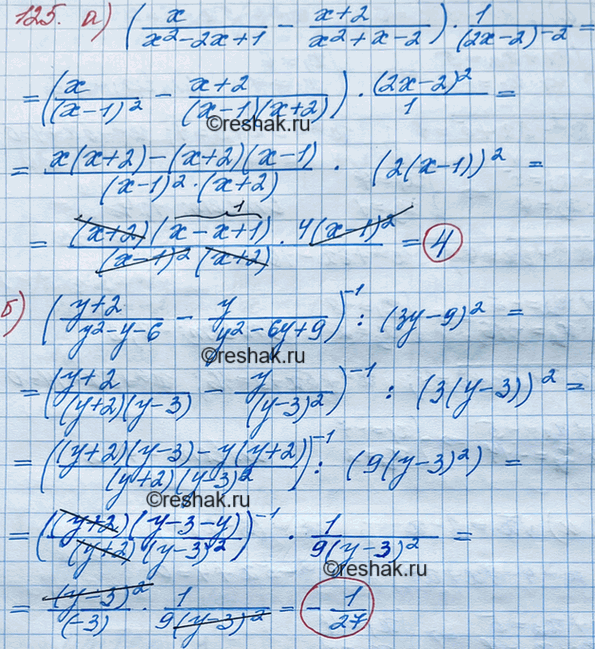 125. а) (x/(x²-2x+1) - (x+2)/(x²+x-2)) · 1/(2x-2)⁻² =
= (x/(x-1)² - (x+2)/((x-1)(x+2))) · (2x-2)²/1 =
©reshak.ru
= (x(x+2)-(x+2)(x-1))/((x-1)²·(x+2)) · (2(x-1))² =
1
= ((x+2)(x-x+1)·4(x-1)²)/((x-1)²(x+2)) = 4
б) ((y+2)/(y²-y-6) - y/(y²-6y+9))⁻¹ : (3y-9)² =
©reshak.ru
= ((y+2)/((y+2)(y-3)) - y/(y-3)²)⁻¹ : (3(y-3))² =
= (((y+2)(y-3)-y(y+2))/((y+2)(y-3)²))⁻¹ : (9(y-3)²) =
©reshak.ru
= (((y+2)(y-3-y))/((y+2)(y-3)²))⁻¹ · 1/(9(y-3)²) =
©reshak.ru
= (y-3)²/(-3) · 1/(9(y-3)²) = -1/27